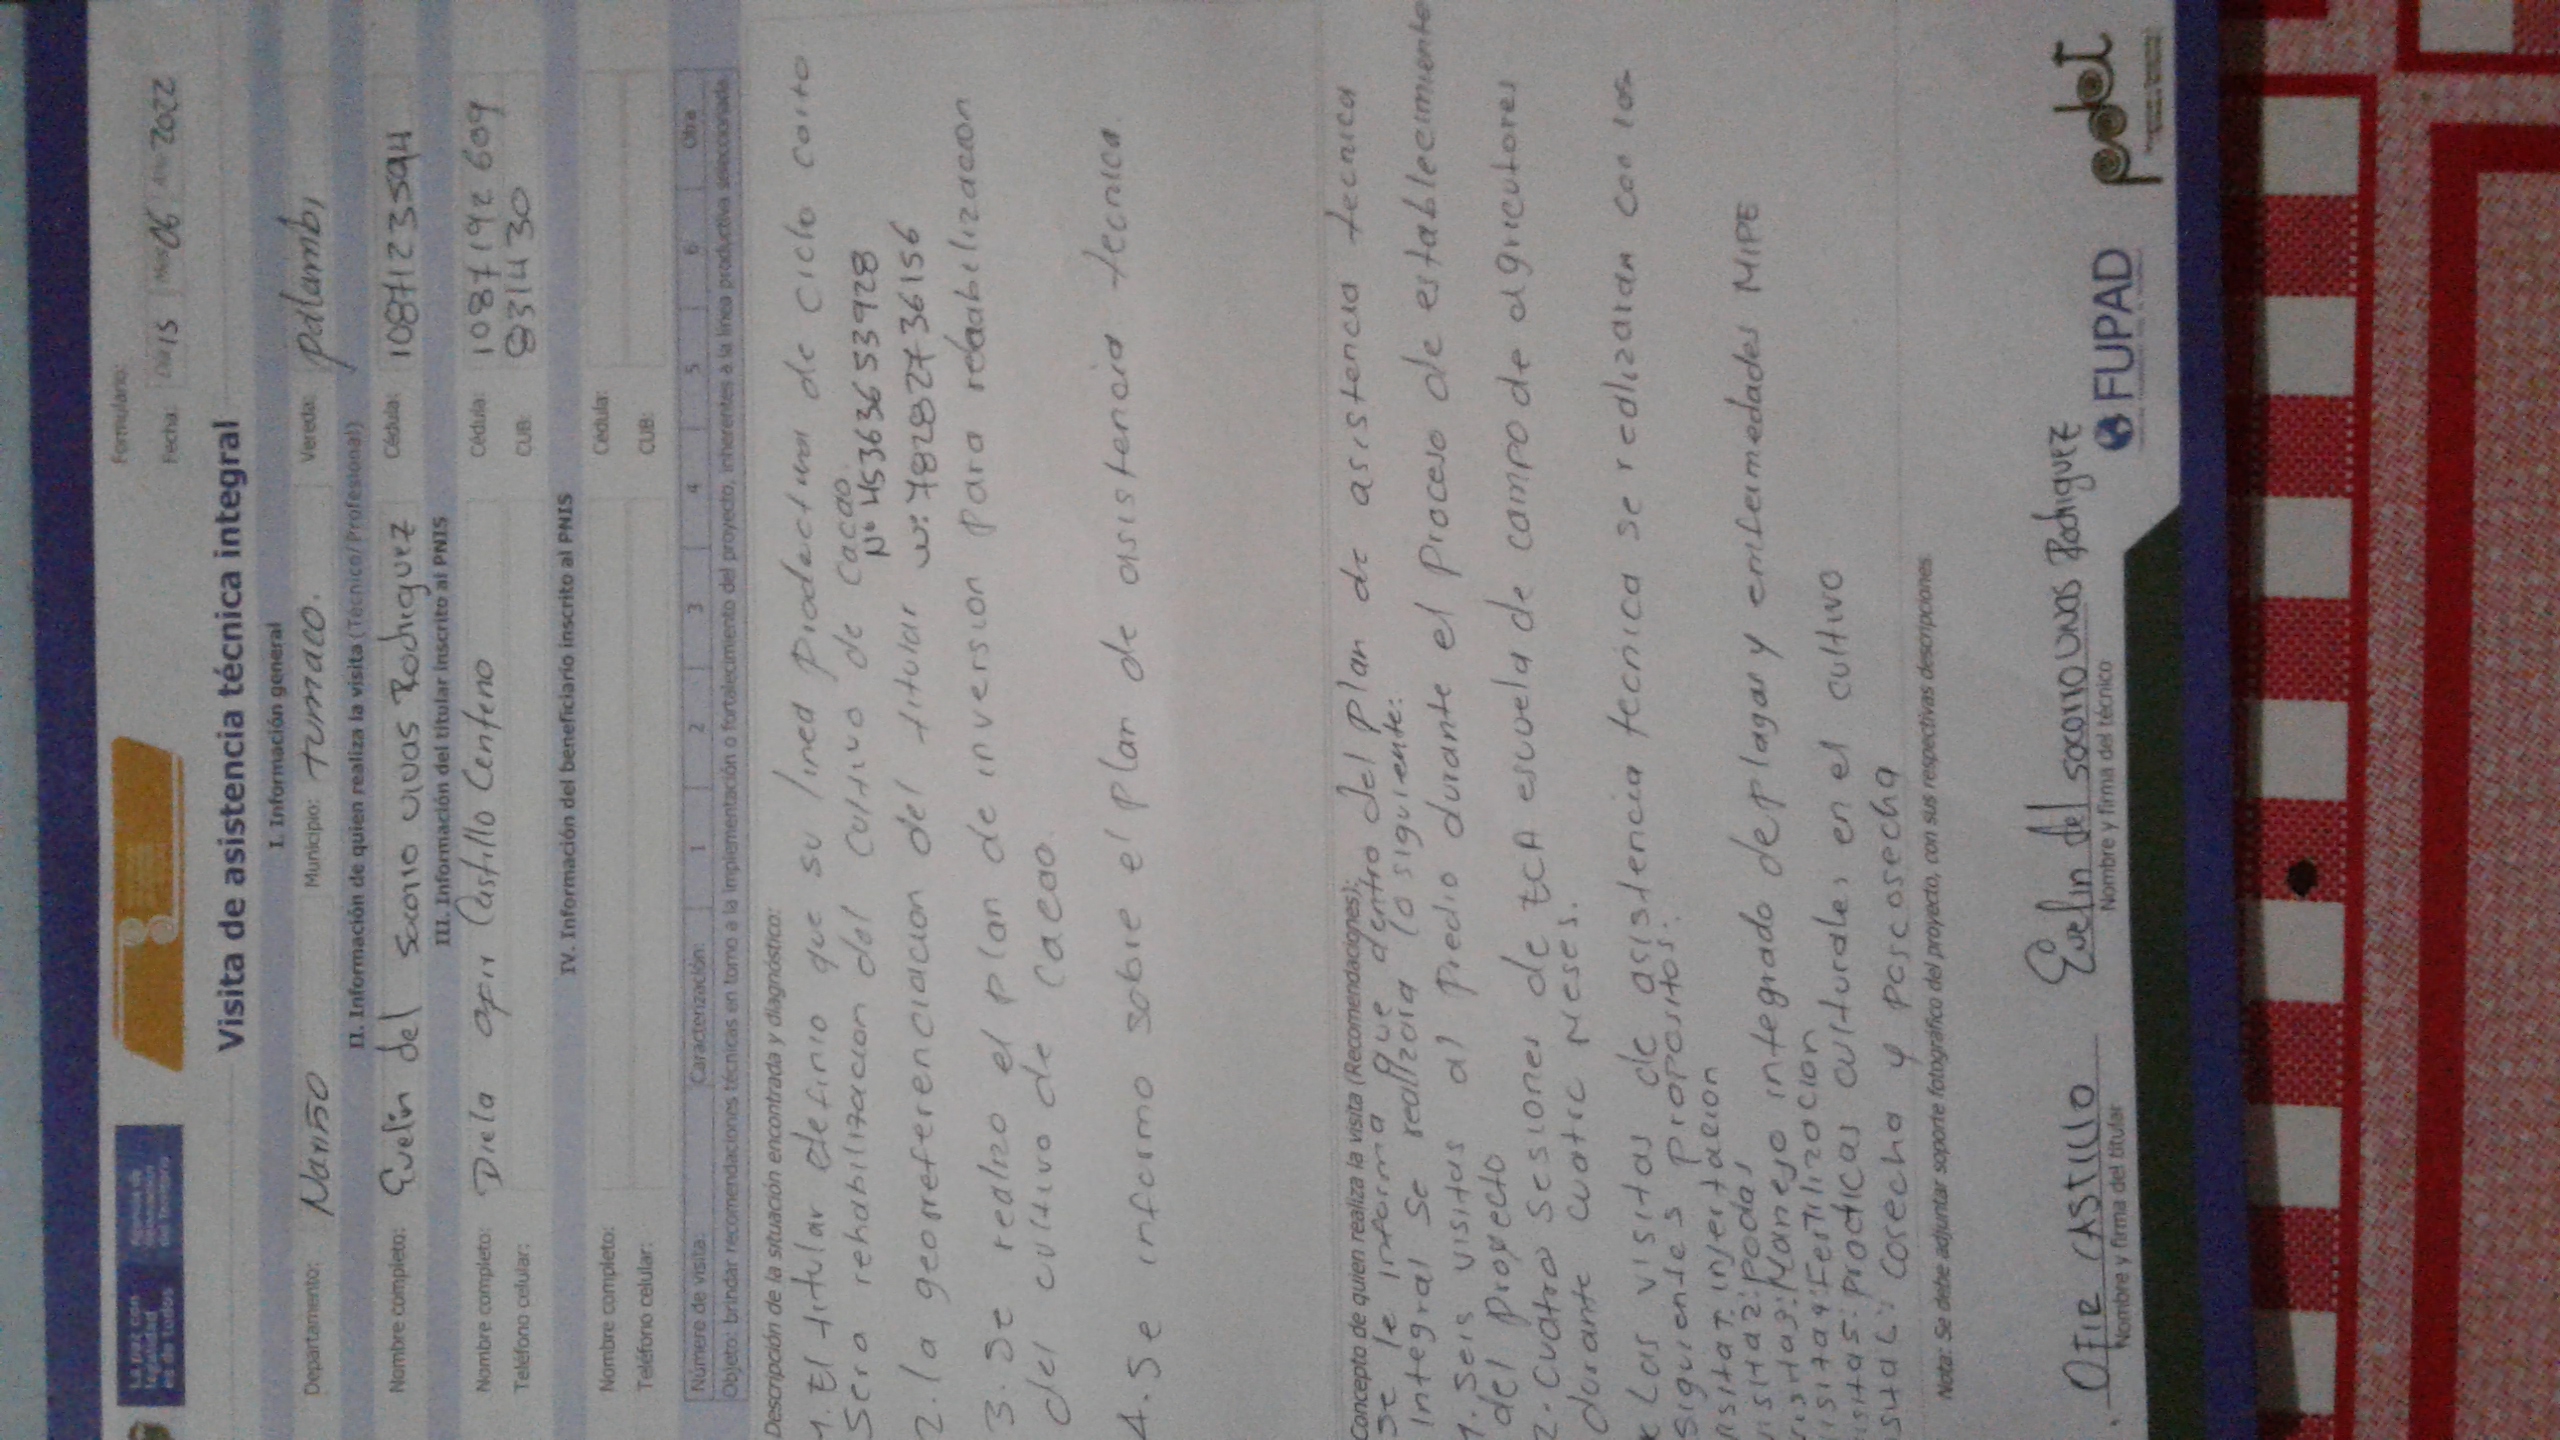 La paz con
legalidad
es de todos
Formulario:
Fecha: Día 15 Mes 06 Año 2022
Visita de asistencia técnica integral
I. Información general
Departamento: Nariño Municipio: tumaco. Vereda: palambi
II. Información de quien realiza la visita (Técnico/ Profesional)
Nombre completo: Evelin del socorro vivas Rodriguez Cédula: 1087123594
III. Información del titular inscrito al PNIS
Nombre completo: Diela ofir Castillo Centeno Cédula: 1087192609
Teléfono celular: CUB: 831430
IV. Información del beneficiario inscrito al PNIS
Nombre completo: Cédula:
Teléfono celular: CUB:
Número de visita: Caracterización: 1 2 3 4 5 6 Otra
Objeto: brindar recomendaciones técnicas en torno a la implementación o fortalecimiento del proyecto, inherentes a la línea productiva seleccionada
Descripción de la situación encontrada y diagnóstico:
1. El titular definio que su linea productiva de ciclo corto
Sera rehabilitacion del cultivo de cacao.
N° 45363653928
2. la georreferenciacion del titular w: 78282736156
3. Se realizo el plan de inversion para reabilizacion
del cultivo de cacao.
4. Se informo sobre el plan de asistencia tecnica.
Concepto de quien realiza la visita (Recomendaciones):
Se le informa que dentro del plan de asistencia tecnica
integral se realizara lo siguiente:
1. Seis visitas al predio durante el proceso de establecimiento
del proyecto
2. Cuatro sesiones de ECA escuela de campo de agricutores
durante cuatro Meses.
* Las visitas de asistencia tecnica se realizaran con los
siguientes propositos:
visita 1: injertacion
visita 2: podas
visita 3: Manejo integrado de plagas y enfermedades MIPE
visita 4: Fertilizacion
visita 5: practicas culturales en el cultivo
Cosecha y poscosecha
Nota: Se debe adjuntar soporte fotográfico del proyecto, con sus respectivas descripciones
OFIR CASTILLO Evelin del socorro vivas Rodriguez
Nombre y firma del titular Nombre y firma del técnico
FUPAD
pdet